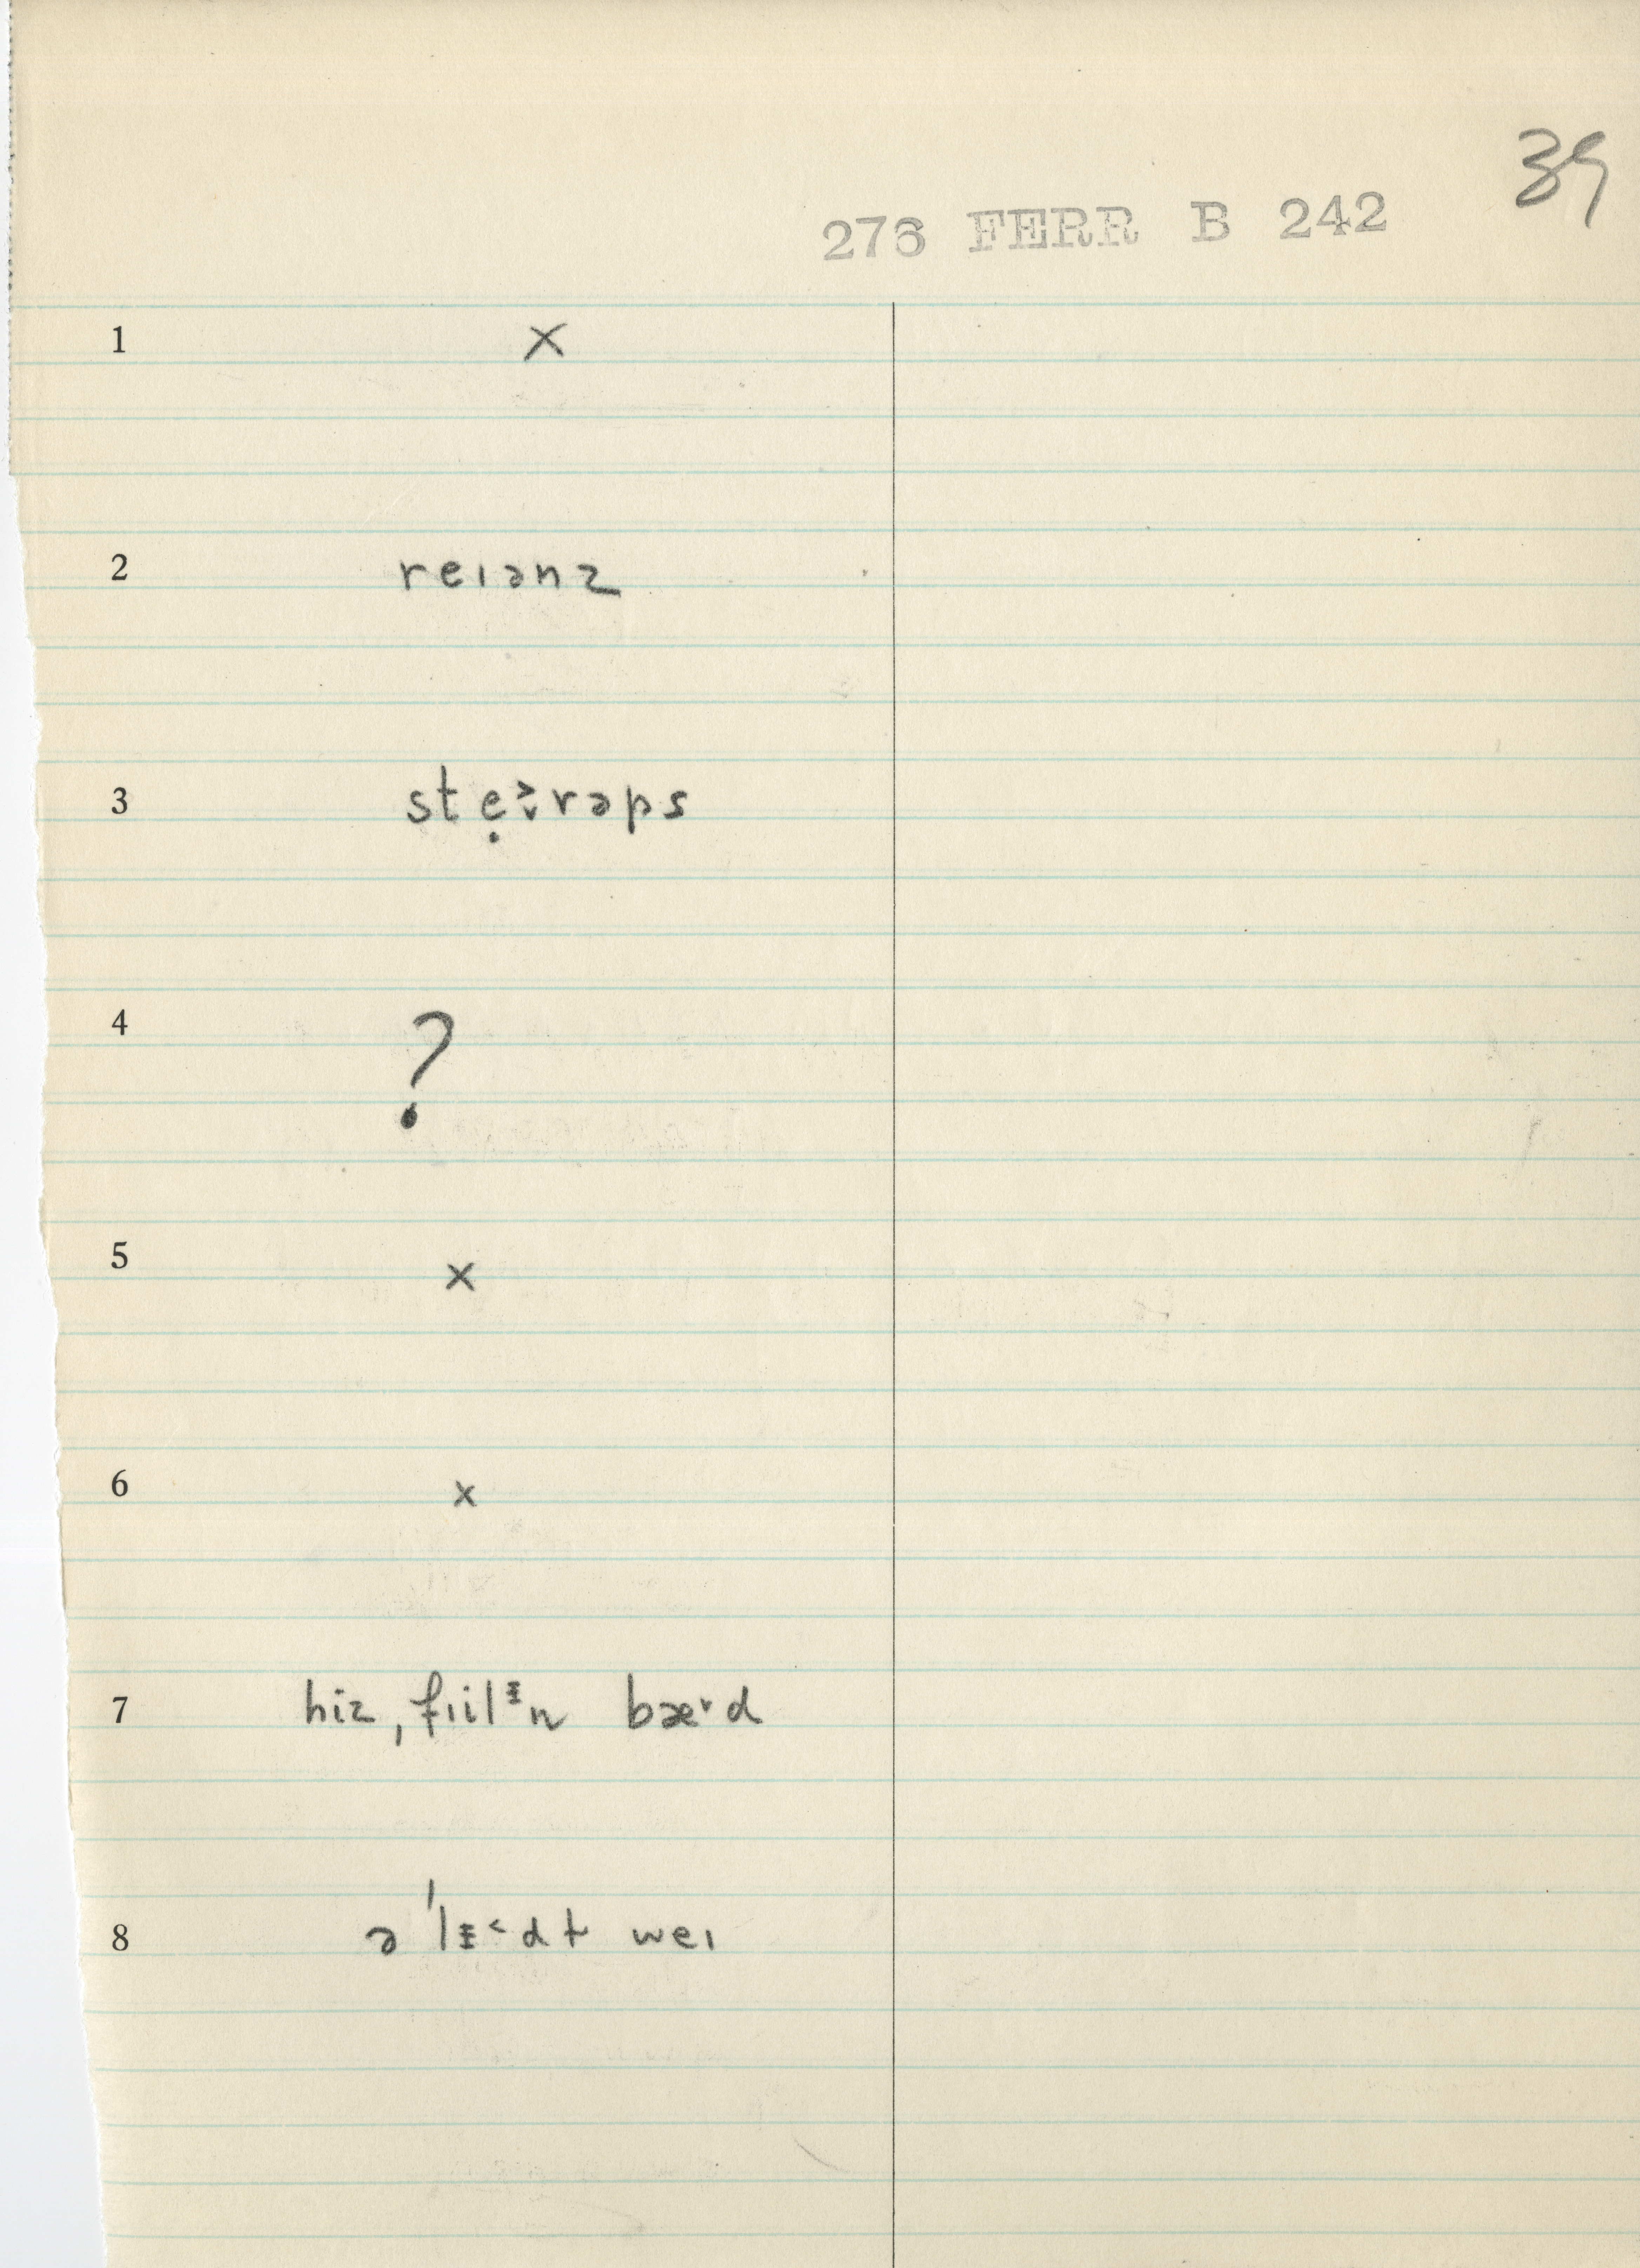 39
276 FERR B 242
1 ×
2 reɪənz
3 stẹ˃˯rəps
4 ?
5 ×
6 ×
7 hiz ˌfɪilᵻn bæ˅d
8 ə ˈlᵻ˂dt weɪ